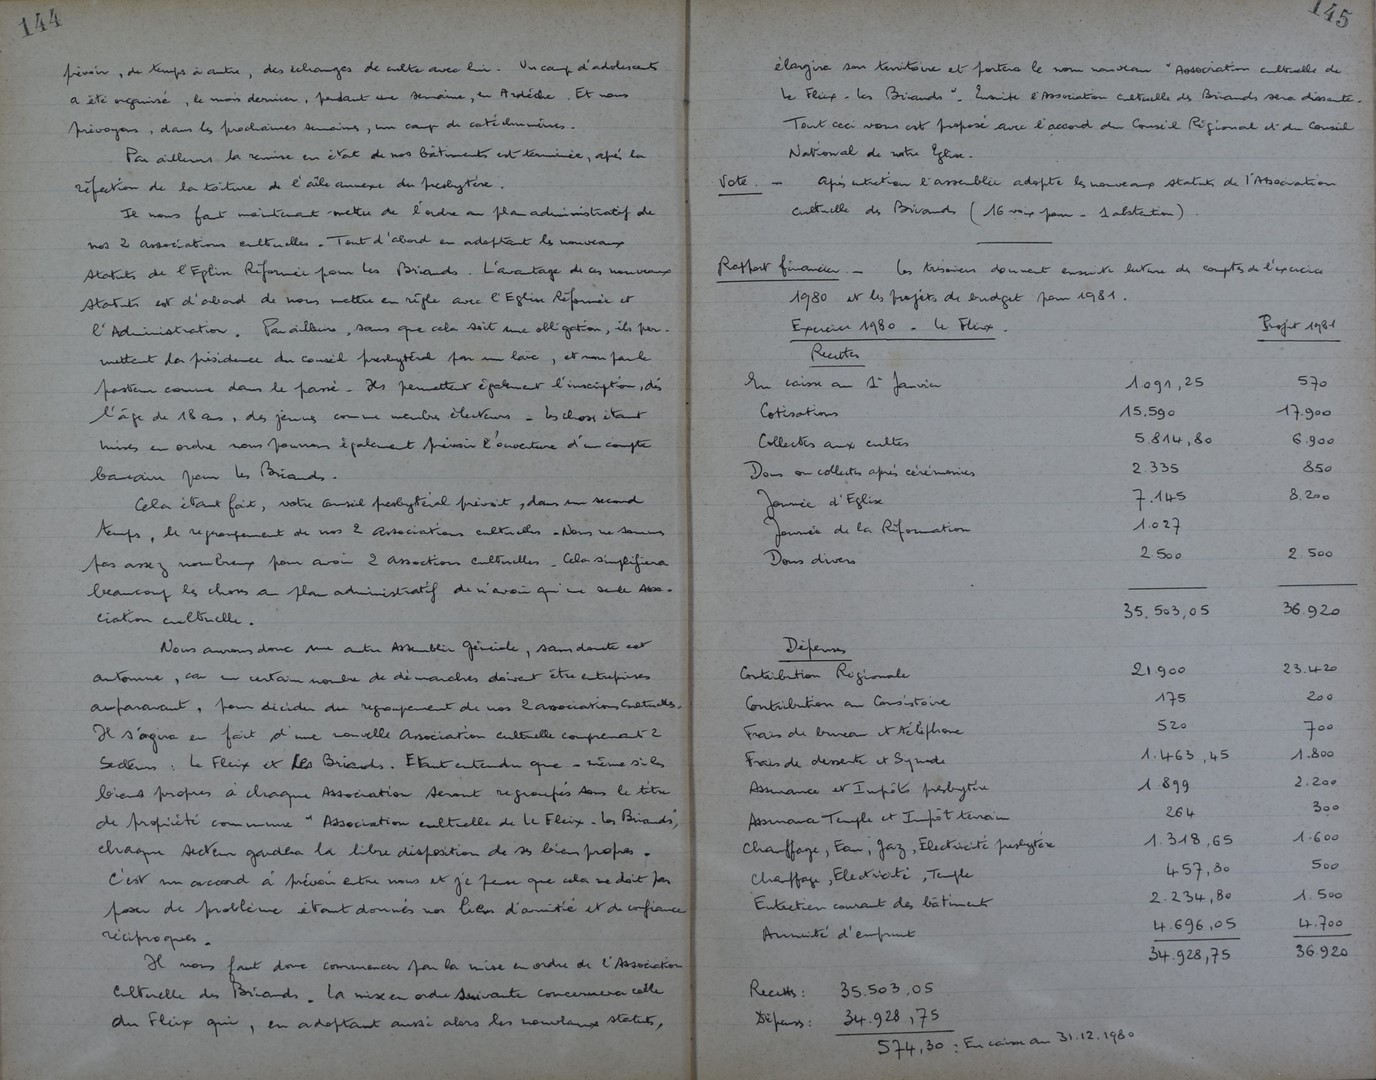 144
prévoir, de temps à autre, des échanges de culte avec lui. Un camp d'adolescents
a été organisé, le mois dernier, pendant une semaine, en Ardèche. Et nous
prévoyons, dans les prochaines semaines, un camp de catéchumènes.
Par ailleurs la remise en état de nos bâtiments est terminée, après la
réfection de la toiture de l'aile annexe du presbytère.
Il nous faut maintenant mettre de l'ordre au plan administratif de
nos 2 associations cultuelles. Tout d'abord en adoptant les nouveaux
statuts de l'Eglise Réformée pour les Briands. L'avantage de ces nouveaux
statuts est d'abord de nous mettre en règle avec l'Eglise Réformée et
l'Administration. Par ailleurs, sans que cela soit une obligation, ils per-
mettent la présidence du conseil presbytéral par un laïc, et non par le
pasteur comme dans le passé. Ils permettent également l'inscription, dès
l'âge de 18 ans, des jeunes comme membres électeurs. Les choses étant
mises en ordre nous pourrons également prévoir l'ouverture d'un compte
bancaire pour les Briands.
Cela étant fait, votre conseil presbytéral prévoit, dans un second
temps, le regroupement de nos 2 Associations cultuelles. Nous ne sommes
pas assez nombreux pour avoir 2 associations cultuelles. Cela simplifiera
beaucoup les choses au plan administratif de n'avoir qu'une seule Asso-
ciation cultuelle.
Nous aurons donc une autre Assemblée Générale, sans doute cet
automne, car un certain nombre de démarches doivent être entreprises
auparavant, pour décider du regroupement de nos 2 associations cultuelles.
Il s'agira en fait d'une nouvelle Association cultuelle comprenant 2
secteurs : Le Fleix et Les Briands. Etant entendu que - même si les
biens propres à chaque Association seront regroupés sous le titre
de propriété commune "Association cultuelle de Le Fleix - Les Briands",
chaque secteur gardera la libre disposition de ses biens propres.
C'est un accord à prévoir entre nous et je pense que cela ne doit pas
poser de problème étant donnés nos liens d'amitié et de confiance
réciproques.
Il nous faut donc commencer par la mise en ordre de l'Association
Cultuelle des Briands. La mise en ordre suivante concernera celle
du Fleix qui, en adoptant aussi alors les nouveaux statuts,
145
élargira son territoire et portera le nom nouveau "Association cultuelle de
Le Fleix - Les Briands". Ensuite l'Association cultuelle des Briands sera dissoute.
Tout ceci vous est proposé avec l'accord du Conseil Régional et du Conseil
National de notre Eglise.
Vote. - Après entretien l'assemblée adopte les nouveaux statuts de l'Association
cultuelle des Briands (16 voix pour - 1 abstention).
Rapport financier. - Les trésoriers donnent ensuite lecture des comptes de l'exercice
1980 et les projets de budget pour 1981.
Exercice 1980 - Le Fleix. Projet 1981
Recettes
En caisse au 1er Janvier 1.091,25 570
Cotisations 15.590 17.900
Collectes aux cultes 5.814,80 6.900
Dons ou collectes après cérémonies 2.335 850
Journée d'Eglise 7.145 8.200
Journée de la Réformation 1.027
Dons divers 2.500 2.500
35.503,05 36.920
Dépenses
Contribution Régionale 21.900 23.420
Contribution au Consistoire 175 200
Frais de bureau et téléphone 520 700
Frais de desserte et Synode 1.463,45 1.800
Assurance et Impôts presbytère 1.899 2.200
Assurance Temple et Impôt terrain 264 300
Chauffage, Eau, Gaz, Electricité presbytère 1.318,65 1.600
Chauffage, Electricité, Temple 457,80 500
Entretien courant des bâtiments 2.234,80 1.500
Annuité d'emprunt 4.696,05 4.700
34.928,75 36.920
Recettes : 35.503,05
Dépenses : 34.928,75
574,30 : En caisse au 31.12.1980